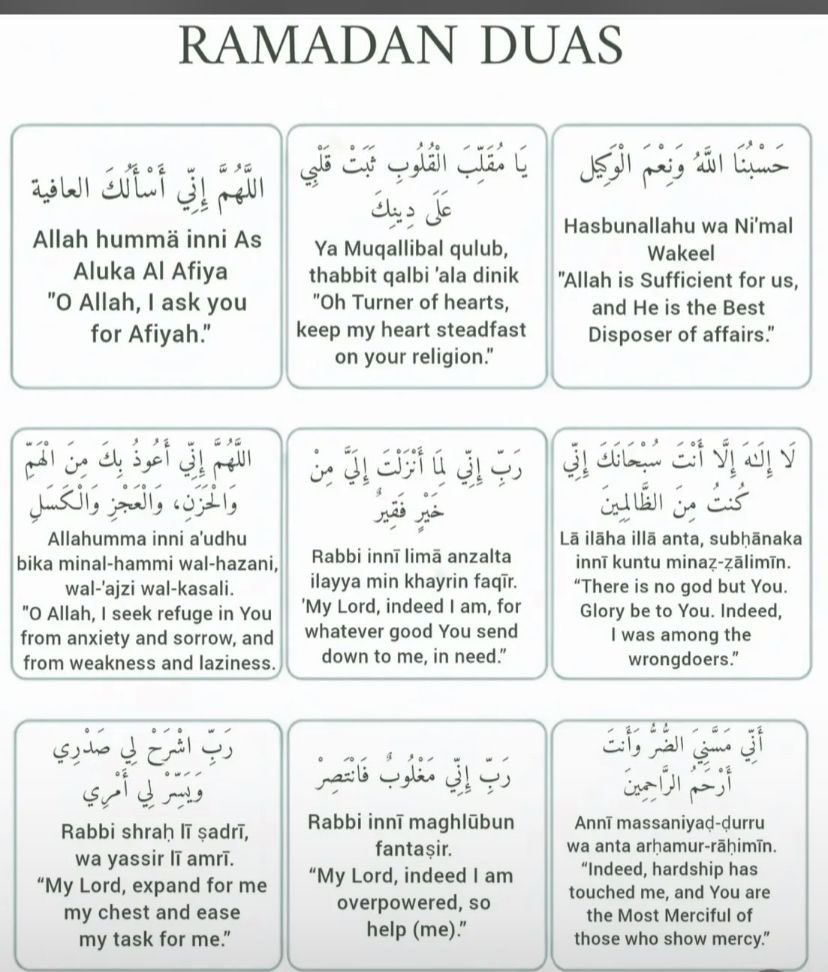 RAMADAN DUAS
اللَّهُمَّ إِنِّي أَسْأَلُكَ العافية
Allah hummä inni As
Aluka Al Afiya
"O Allah, I ask you
for Afiyah."
يَا مُقَلِّبَ الْقُلُوبِ ثَبِّتْ قَلْبِي
عَلَى دِينِكَ
Ya Muqallibal qulub,
thabbit qalbi 'ala dinik
"Oh Turner of hearts,
keep my heart steadfast
on your religion."
حَسْبُنَا اللَّهُ وَنِعْمَ الْوَكِيل
Hasbunallahu wa Ni'mal
Wakeel
"Allah is Sufficient for us,
and He is the Best
Disposer of affairs."
اللَّهُمَّ إِنِّي أَعُوذُ بِكَ مِنَ الْهَمِّ
وَالْحَزَنِ، وَالْعَجْزِ وَالْكَسَلِ
Allahumma inni a'udhu
bika minal-hammi wal-hazani,
wal-'ajzi wal-kasali.
"O Allah, I seek refuge in You
from anxiety and sorrow, and
from weakness and laziness.
رَبِّ إِنِّي لِمَا أَنْزَلْتَ إِلَيَّ مِنْ
خَيْرٍ فَقِيرٌ
Rabbi innī limā anzalta
ilayya min khayrin faqīr.
'My Lord, indeed I am, for
whatever good You send
down to me, in need.”
لَا إِلَهَ إِلَّا أَنْتَ سُبْحَانَكَ إِنِّي
كُنتُ مِنَ الظَّالِمِينَ
Lā ilāha illā anta, subḥānaka
innī kuntu minaẓ-ẓālimīn.
“There is no god but You.
Glory be to You. Indeed,
I was among the
wrongdoers.”
رَبِّ اشْرَحْ لِي صَدْرِي
وَيَسِّرْ لِي أَمْرِي
Rabbi shraḥ lī ṣadrī,
wa yassir lī amrī.
“My Lord, expand for me
my chest and ease
my task for me.”
رَبِّ إِنِّي مَغْلُوبٌ فَانْتَصِرْ
Rabbi innī maghlūbun
fantaṣir.
“My Lord, indeed I am
overpowered, so
help (me).”
أَنِّي مَسَّنِيَ الضُّرُّ وَأَنتَ
أَرْحَمُ الرَّاحِمِينَ
Annī massaniyaḍ-ḍurru
wa anta arḥamur-rāḥimīn.
“Indeed, hardship has
touched me, and You are
the Most Merciful of
those who show mercy.”